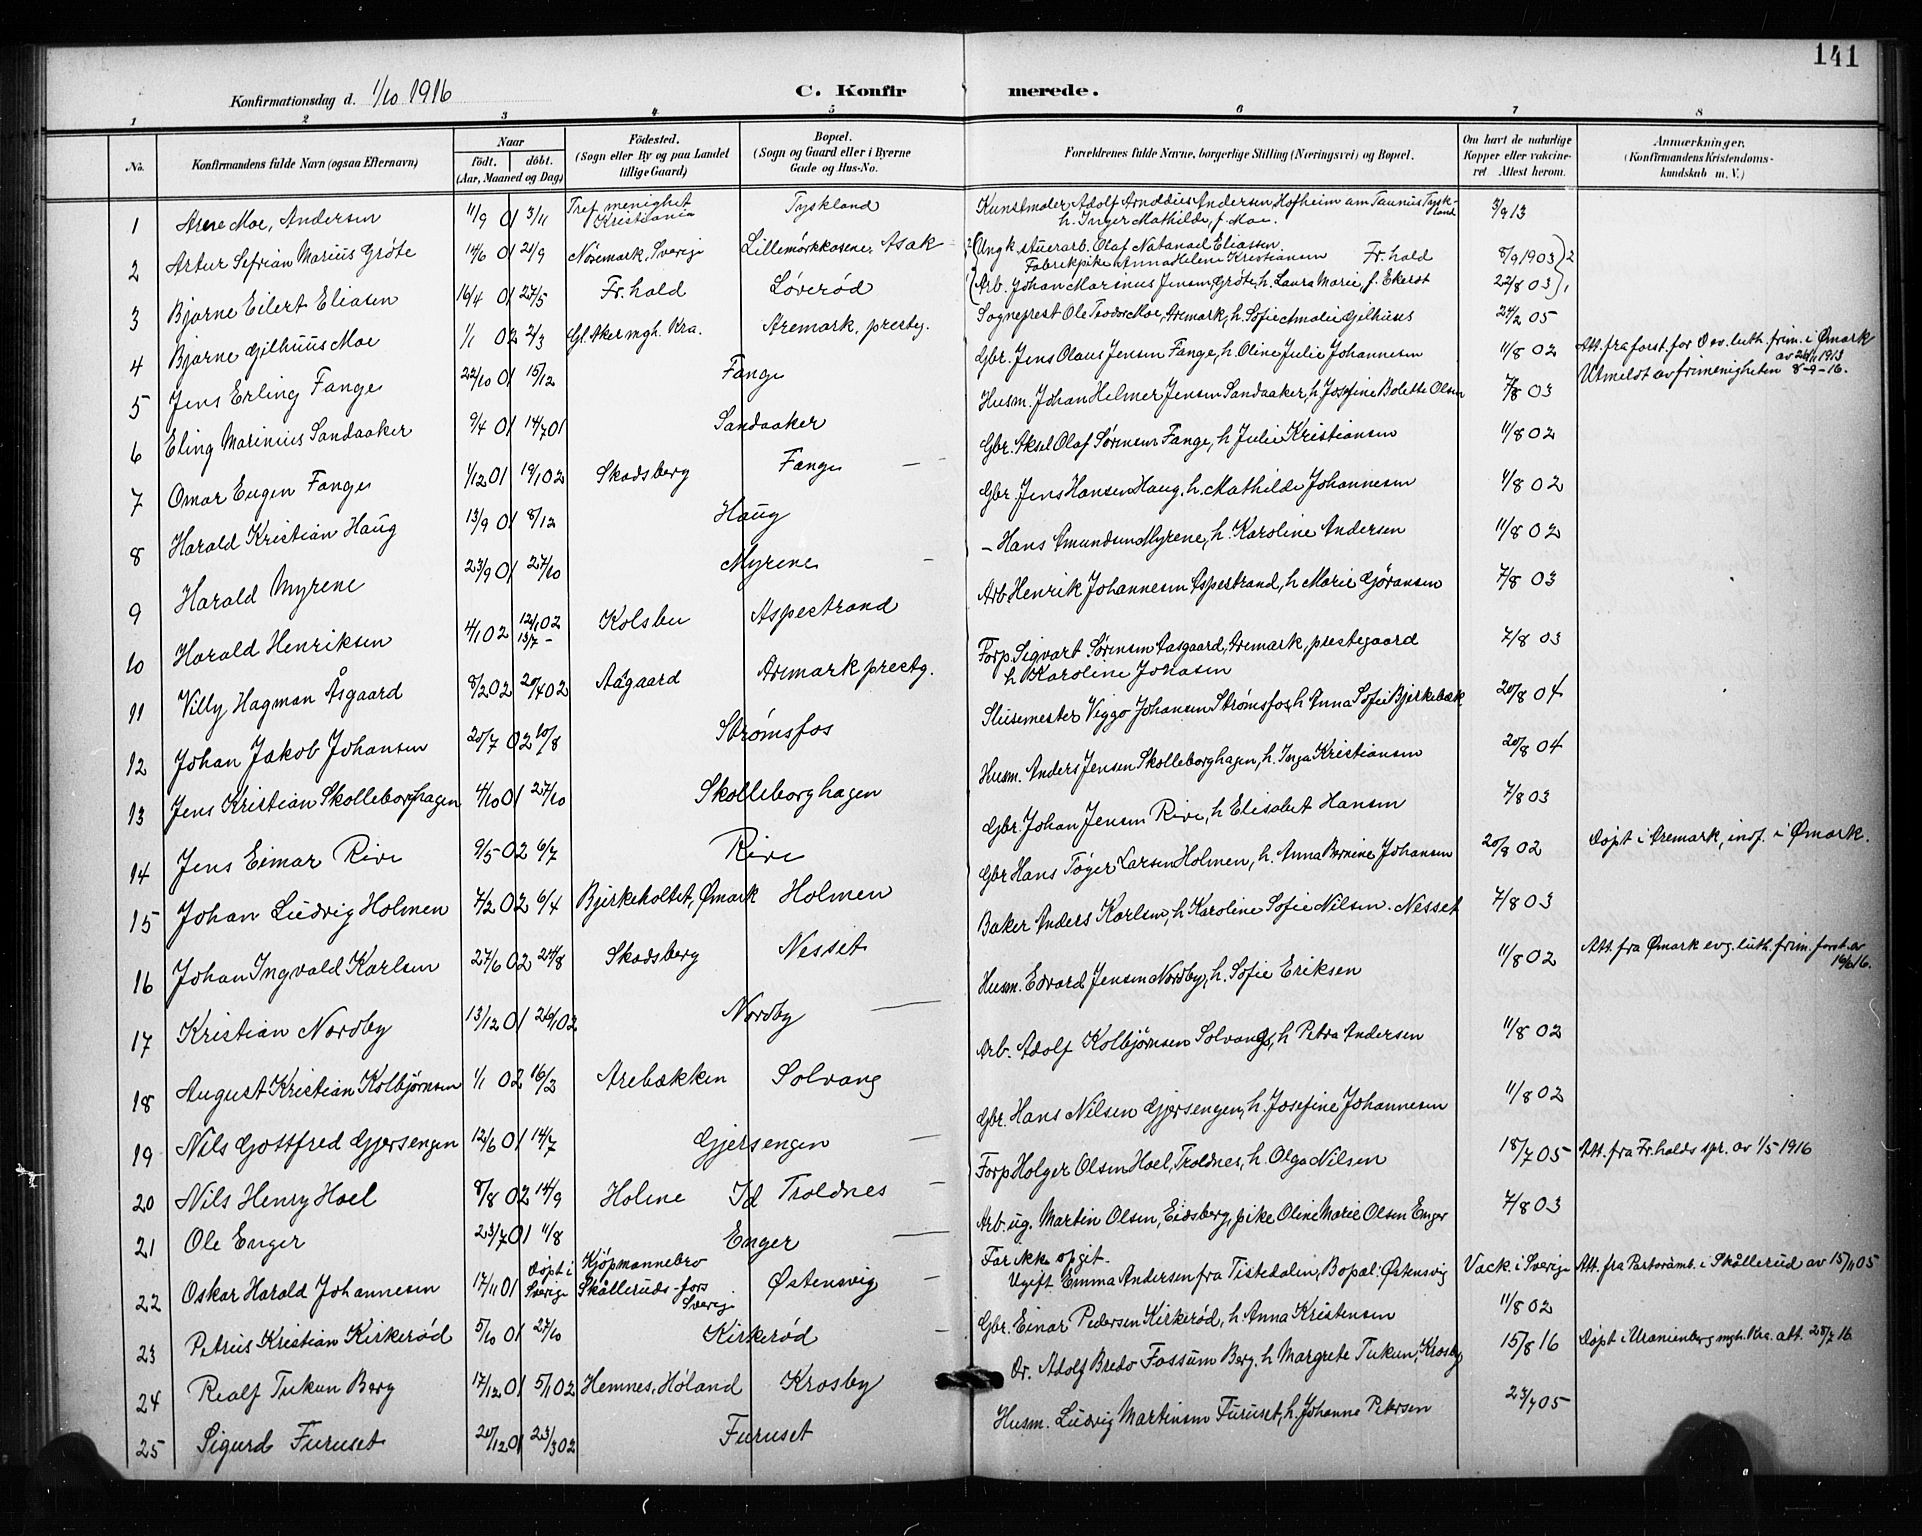 141
Konfirmationsdag d. 1/10 1916
C. Konfirmerede.
1 2 3 4 5 6 7 8
No. Konfirmandens fulde Navn (ogsaa Efternavn) Naar födt. döbt. (Aar, Maaned og Dag) Födested. (Sogn eller By og paa Landet tillige Gaard) Bopæl. (Sogn og Gaard eller i Byerne Gade og Hus-No. Forældrenes fulde Navne, borgerlige Stilling (Næringsvei) og Bopæl. Om havt de naturlige Kopper eller vakcineret Attest herom. Anmærkninger. (Konfirmandens Kristendomskundskab m. V.)
1 Arne Moe, Andersen 11/9 01 3/11 Tref. menighet Kristiania Tyskland Kunstmaler Adolf Arnddius Andersen, Hofheim am Taunus Tyskland h. Inger Mathilde, f. Moe. 3/9 13
2 Artur Sefrian Marius Gröte 14/6 01 21/9 Nösemark, Sverige Lillemörkkasene, Asak 2 (Ung k. stuerarb. Olaf Natanael Eliassen. Fabrikpike Anna Helene Kristiansen Fr.hald 8/9 1903 ) 2
3 Bjarne Eilert Eliasen 16/4 01 27/5 Fr. hald Löveröd 1 (Arb. Johan Marinus Jensen Gröte, h. Laura Marie, f. Ekeröt 22/8 03 ) 1
4 Bjarne Gilhuus Moe 1/1 02 2/3 Gl. Aker mgh. Kra. Aremark, presteg. Sogneprest Ole Teodor Moe, Aremark, h. Sofie Amalie Gilhuus 24/2 05
5 Jens Erling Fange 22/10 01 15/12 Fange Gbr. Jens Olaus Jensen Fange, h. Oline Julie Johannesen 11/8 02 Att. fra forst. for D ev. luth. frim. i Ømark av 24/11 1913 Utmeldt av frimenigheten 8-9-16.
6 Eling Marinius Sandaaker 9/4 01 14/7 01 Sandaaker Husm. Johan Helmer Jensen Sandaaker, h. Josefine Bolette Olsen 7/8 03
7 Omar Eugen Fange 1/12 01 19/1 02 Skodsberg Fange — Gbr. Aksel Olaf Sørensen Fange, h. Julie Kristiansen 11/8 02
8 Harald Kristian Haug 13/9 01 8/12 Haug Gbr. Jens Hansen Haug, h. Mathilde Johannesen 11/8 02
9 Harald Myrene 23/9 01 27/10 Myrene — — Hans Amundsen Myrene, h. Karoline Andersen 11/8 02
10 Harald Henriksen 4/1 02 12/1 02 13/7 - Kolsbu Aspestrand Arb. Henrik Johannesen Aspestrand, h Marie Gjøransen 7/8 03
11 Villy Hagman Åsgaard 8/2 02 20/4 02 Aagaard Aremark prestg. Forp. Sigvart Sørensen Aasgaard, Aremark, prestegaard h Karoline Johasen 7/8 03
12 Johan Jakob Johansen 20/7 02 10/8 Strømsfos Slusemester Viggo Johansen Strømsfos, h Anna Sofie Bjerkebæk 20/8 04
13 Jens Kristian Skolleborghagen 4/10 01 27/10 Skolleborghagen Husm. Anders Jensen Skolleborghagen, h. Inga Kristiansen 20/8 04
14 Jens Eimar Rive 9/5 02 6/7 Rive Gbr. Johan Jensen Rive, h Elisabet Hansen 7/8 03
15 Johan Ludvig Holmen 7/2 02 6/4 Bjerkeholtet, Ømark Holmen Gbr Hans Töger Larsen Holmen, h. Anna Bernine Johansen 20/8 02 Döpt i Aremark, indf. i Ømark.
16 Johan Ingvald Karlsen 27/6 02 24/8 Skodsberg Nesset Baker Anders Karlsen, h Karoline Sofie Nilsen. Nesset 7/8 03
17 Kristian Nordby 13/12 01 26/1 02 Nordby — Husm. Edvard Jensen Nordby, h. Sofie Eriksen 11/8 02 Att. fra Ømark evg. luth. frim. forst. av 16/6 16.
18 August Kristian Kolbjørnsen 1/1 02 16/2 Arebækken Solvang Arb. Adolf Kolbjørnsen Solvang, h Petra Andersen 11/8 02
19 Nils Gottfred Gjersengen 12/6 01 14/7 Gjersengen — Gbr. Hans Nilsen Gjersengen, h. Josefine Johannesen 11/8 02
20 Nils Henry Hoel 8/8 02 14/9 Holme Id Troldnes — Forp Holger Olsen Hoel, Troldnes, h. Olga Nilsen 18/7 05 Att. fra Fr.halds spr. av 1/5 1916
21 Ole Enger 23/7 01 11/8 Enger — Arb. ug. Martin Olsen, Eidsberg, pike Oline Marie Olsen Enger 7/8 03
22 Oskar Harald Johannesen 17/11 01 døpt i Sverige Kjöpmannebro Skålleruds-fors Sverige Østensvig Far ikke opgit. Ugift Emma Andersen fra Tistedalen, Bopæl: Østensvig Vack. i Sverige Att. fra Pastorämb. i Skållerud av 15/11 05
23 Petrus Kristian Kirkerød 5/10 01 27/10 Kirkerød — Gbr. Einar Pedersen Kirkerød, h. Anna Kristensen 11/8 02
24 Realf Tukun Berg 17/12 01 5/1 02 Hemnes, Høland Krosby Dr. Adolf Bredo Fossum Berg, h Margrete Tukun, Krosby 15/8 16 Döpt i Uranienborg mgh. Kra. att. 28/7 16.
25 Sigurd Furuset 20/12 01 23/3 02 Furuset Husm. Ludvig Martinsen Furuset, h. Johanne Petersen 23/7 05